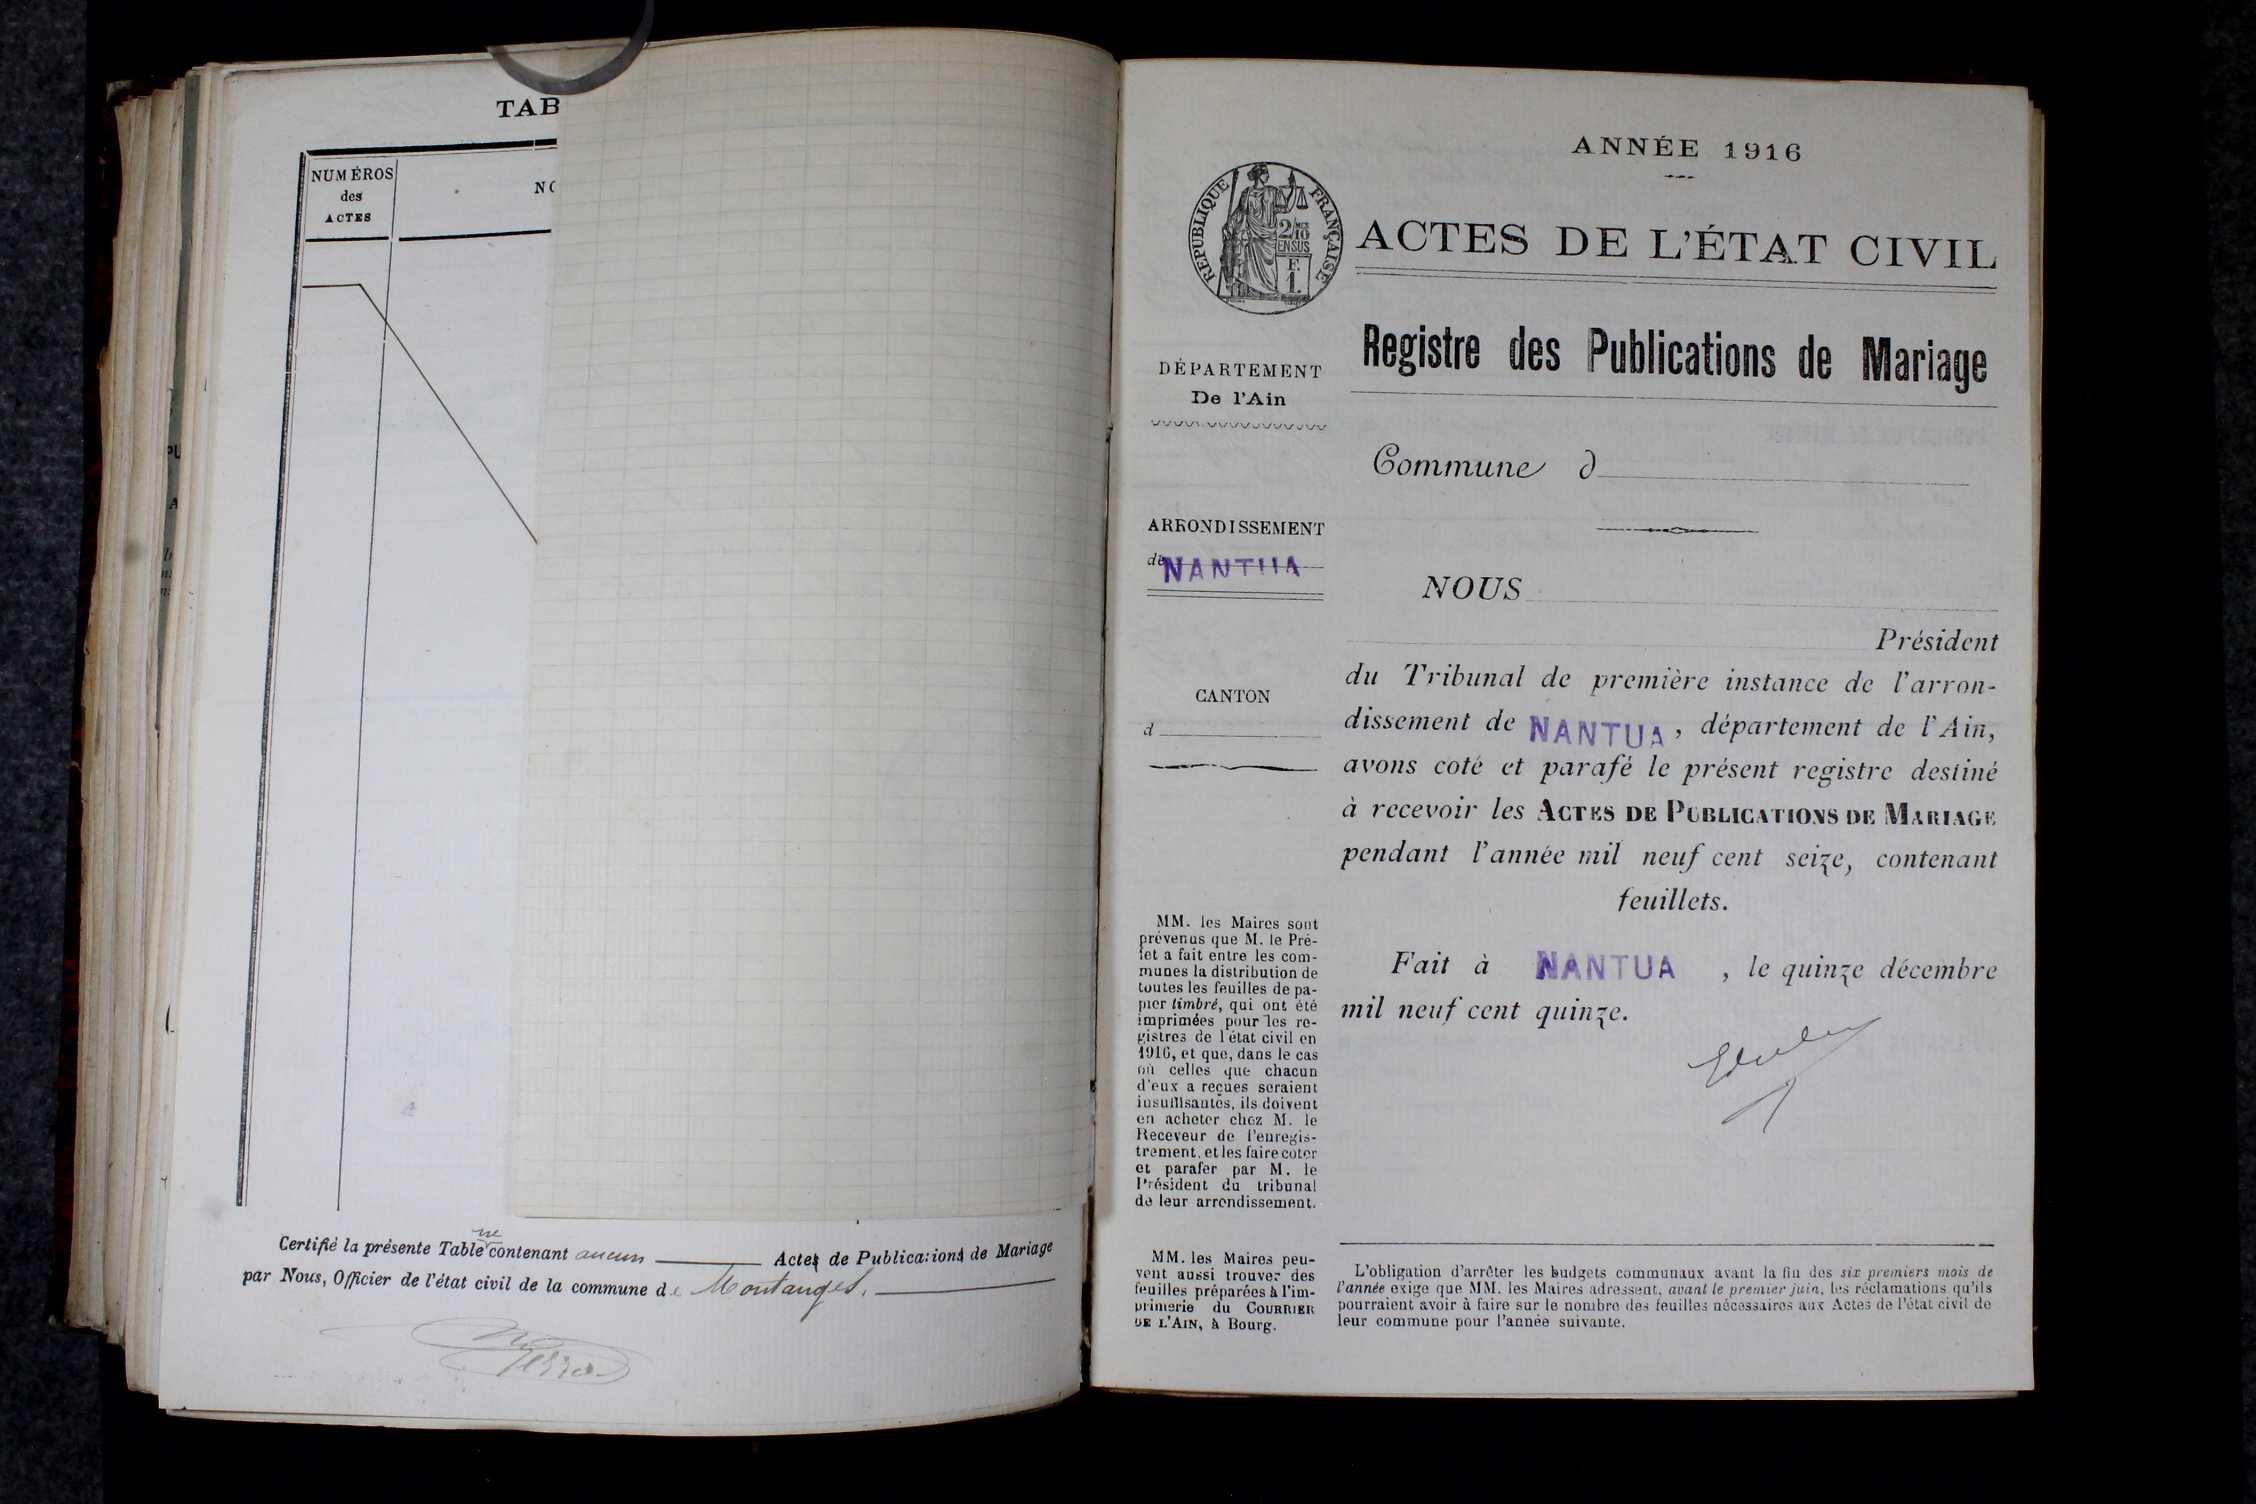 TAB
NUMÉROS
des
ACTES
NO
Certifié la présente Table ne contenant aucun Actes de Publications de Mariage
par Nous, Officier de l'état civil de la commune de Montanges.
ANNÉE 1916
RÉPUBLIQUE FRANÇAISE
2/10
EN SUS
F.
1.
ACTES DE L'ÉTAT CIVIL
Registre des Publications de Mariage
DÉPARTEMENT
De l'Ain
Commune d
ARRONDISSEMENT
de NANTUA
CANTON
d
NOUS
Président
du Tribunal de première instance de l'arron-
dissement de NANTUA, département de l'Ain,
avons coté et parafé le présent registre destiné
à recevoir les ACTES DE PUBLICATIONS DE MARIAGE
pendant l'année mil neuf cent seize, contenant
feuillets.
Fait à NANTUA, le quinze décembre
mil neuf cent quinze.
MM. les Maires sont
prévenus que M. le Pré-
fet a fait entre les com-
munes la distribution de
toutes les feuilles de pa-
pier timbré, qui ont été
imprimées pour les re-
gistres de l'état civil en
1916, et que, dans le cas
où celles que chacun
d'eux a reçues seraient
insuffisantes, ils doivent
en acheter chez M. le
Receveur de l'enregis-
trement, et les faire coter
et parafer par M. le
Président du tribunal
de leur arrondissement.
MM. les Maires peu-
vent aussi trouver des
feuilles préparées à l'im-
primerie du COURRIER
DE L'AIN, à Bourg.
L'obligation d'arrêter les budgets communaux avant la fin des six premiers mois de
l'année exige que MM. les Maires adressent, avant le premier juin, les réclamations qu'ils
pourraient avoir à faire sur le nombre des feuilles nécessaires aux Actes de l'état civil de
leur commune pour l'année suivante.